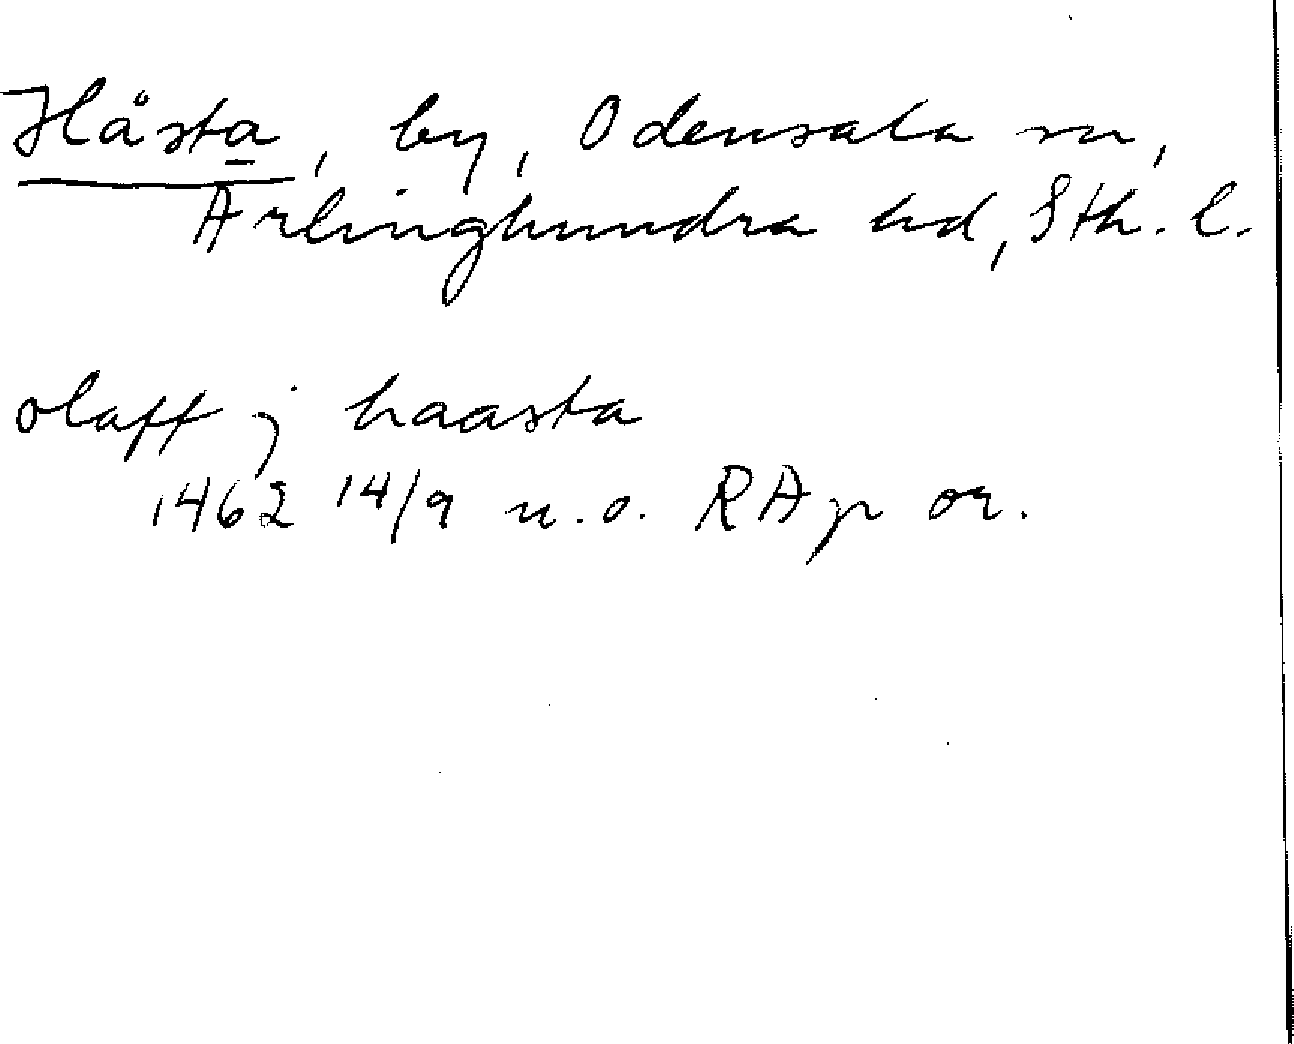 Håsta, by, Odensala sn,
Ärlinghundra hd, Sth. l.
olaff j haasta
1462 14/9 u.o. RAp or.